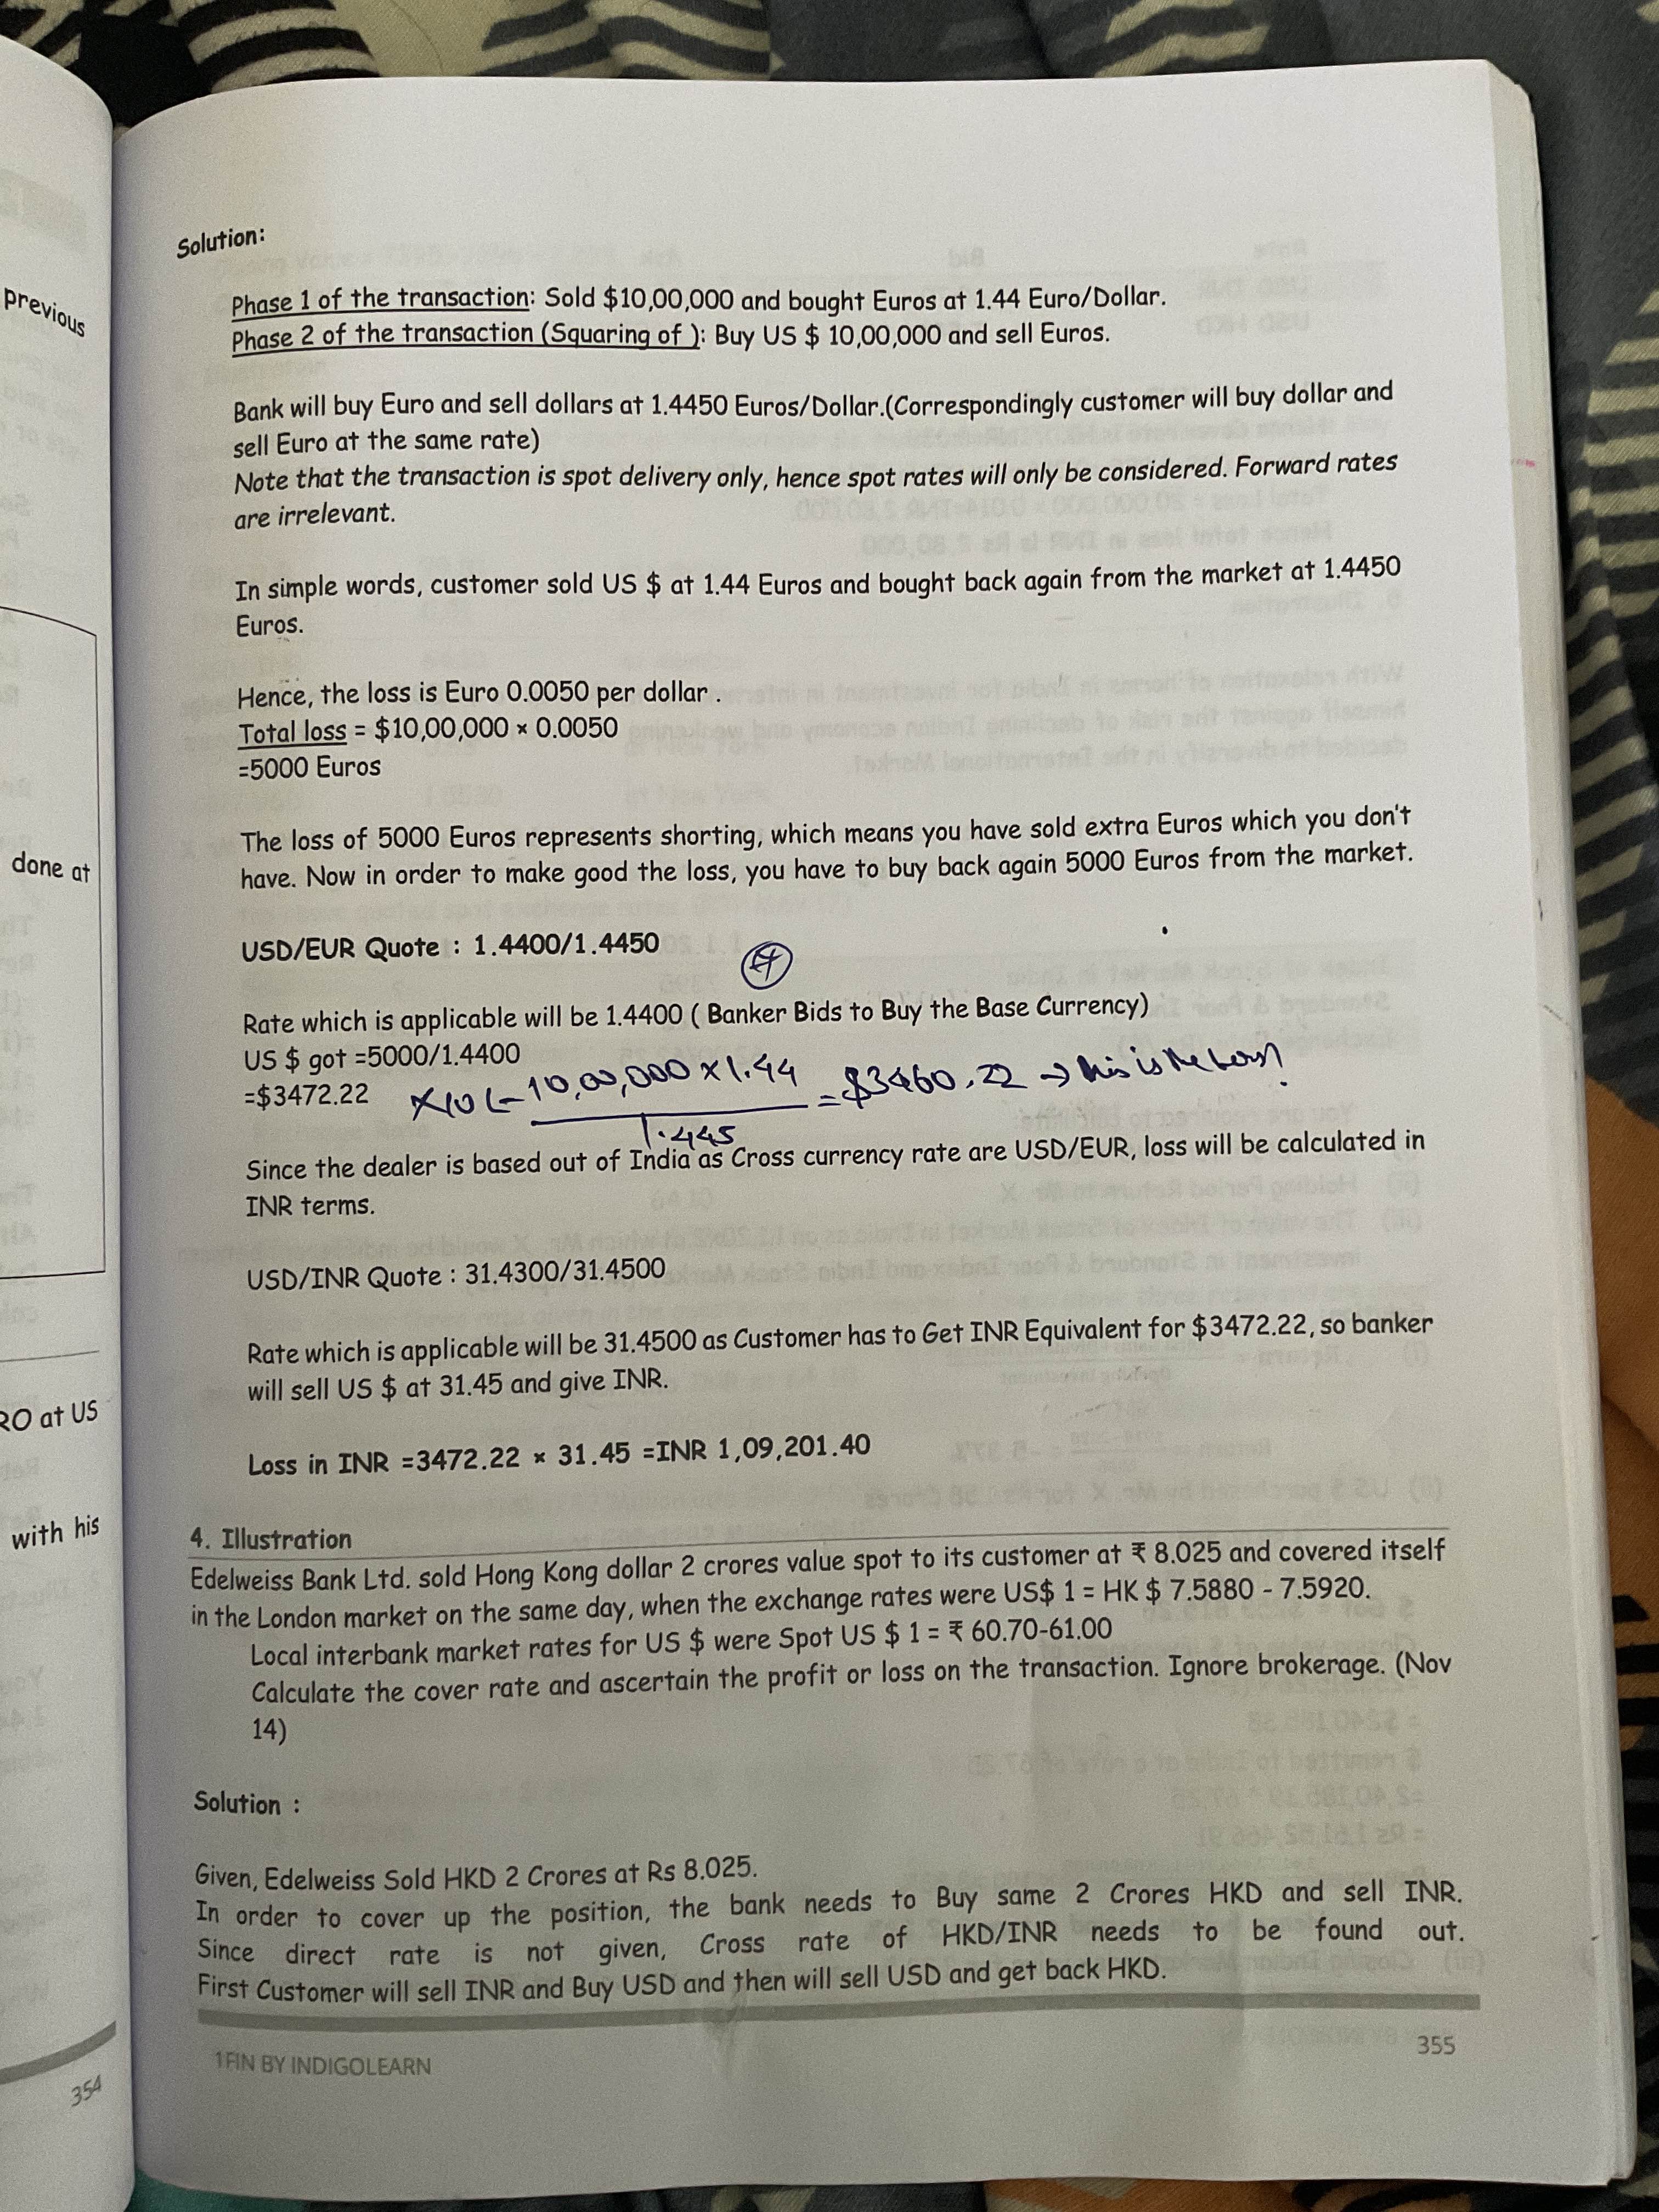 previous
done at
RO at US
with his
354
Solution:
Phase 1 of the transaction: Sold $10,00,000 and bought Euros at 1.44 Euro/Dollar.
Phase 2 of the transaction (Squaring of ): Buy US $ 10,00,000 and sell Euros.
Bank will buy Euro and sell dollars at 1.4450 Euros/Dollar.(Correspondingly customer will buy dollar and
sell Euro at the same rate)
Note that the transaction is spot delivery only, hence spot rates will only be considered. Forward rates
are irrelevant.
In simple words, customer sold US $ at 1.44 Euros and bought back again from the market at 1.4450
Euros.
Hence, the loss is Euro 0.0050 per dollar .
Total loss = $10,00,000 × 0.0050
=5000 Euros
The loss of 5000 Euros represents shorting, which means you have sold extra Euros which you don't
have. Now in order to make good the loss, you have to buy back again 5000 Euros from the market.
USD/EUR Quote : 1.4400/1.4450
Rate which is applicable will be 1.4400 ( Banker Bids to Buy the Base Currency)
US $ got =5000/1.4400
=$3472.22
10,00,000 × 1.44
1.445
= $3460.22 → this is the loss?
Since the dealer is based out of India as Cross currency rate are USD/EUR, loss will be calculated in
INR terms.
USD/INR Quote : 31.4300/31.4500
Rate which is applicable will be 31.4500 as Customer has to Get INR Equivalent for $3472.22, so banker
will sell US $ at 31.45 and give INR.
Loss in INR =3472.22 × 31.45 =INR 1,09,201.40
4. Illustration
Edelweiss Bank Ltd. sold Hong Kong dollar 2 crores value spot to its customer at ₹ 8.025 and covered itself
in the London market on the same day, when the exchange rates were US$ 1 = HK $ 7.5880 - 7.5920.
Local interbank market rates for US $ were Spot US $ 1 = ₹ 60.70-61.00
Calculate the cover rate and ascertain the profit or loss on the transaction. Ignore brokerage. (Nov
14)
Solution :
Given, Edelweiss Sold HKD 2 Crores at Rs 8.025.
In order to cover up the position, the bank needs to Buy same 2 Crores HKD and sell INR.
Since direct rate is not given, Cross rate of HKD/INR needs to be found out.
First Customer will sell INR and Buy USD and then will sell USD and get back HKD.
1FIN BY INDIGOLEARN
355